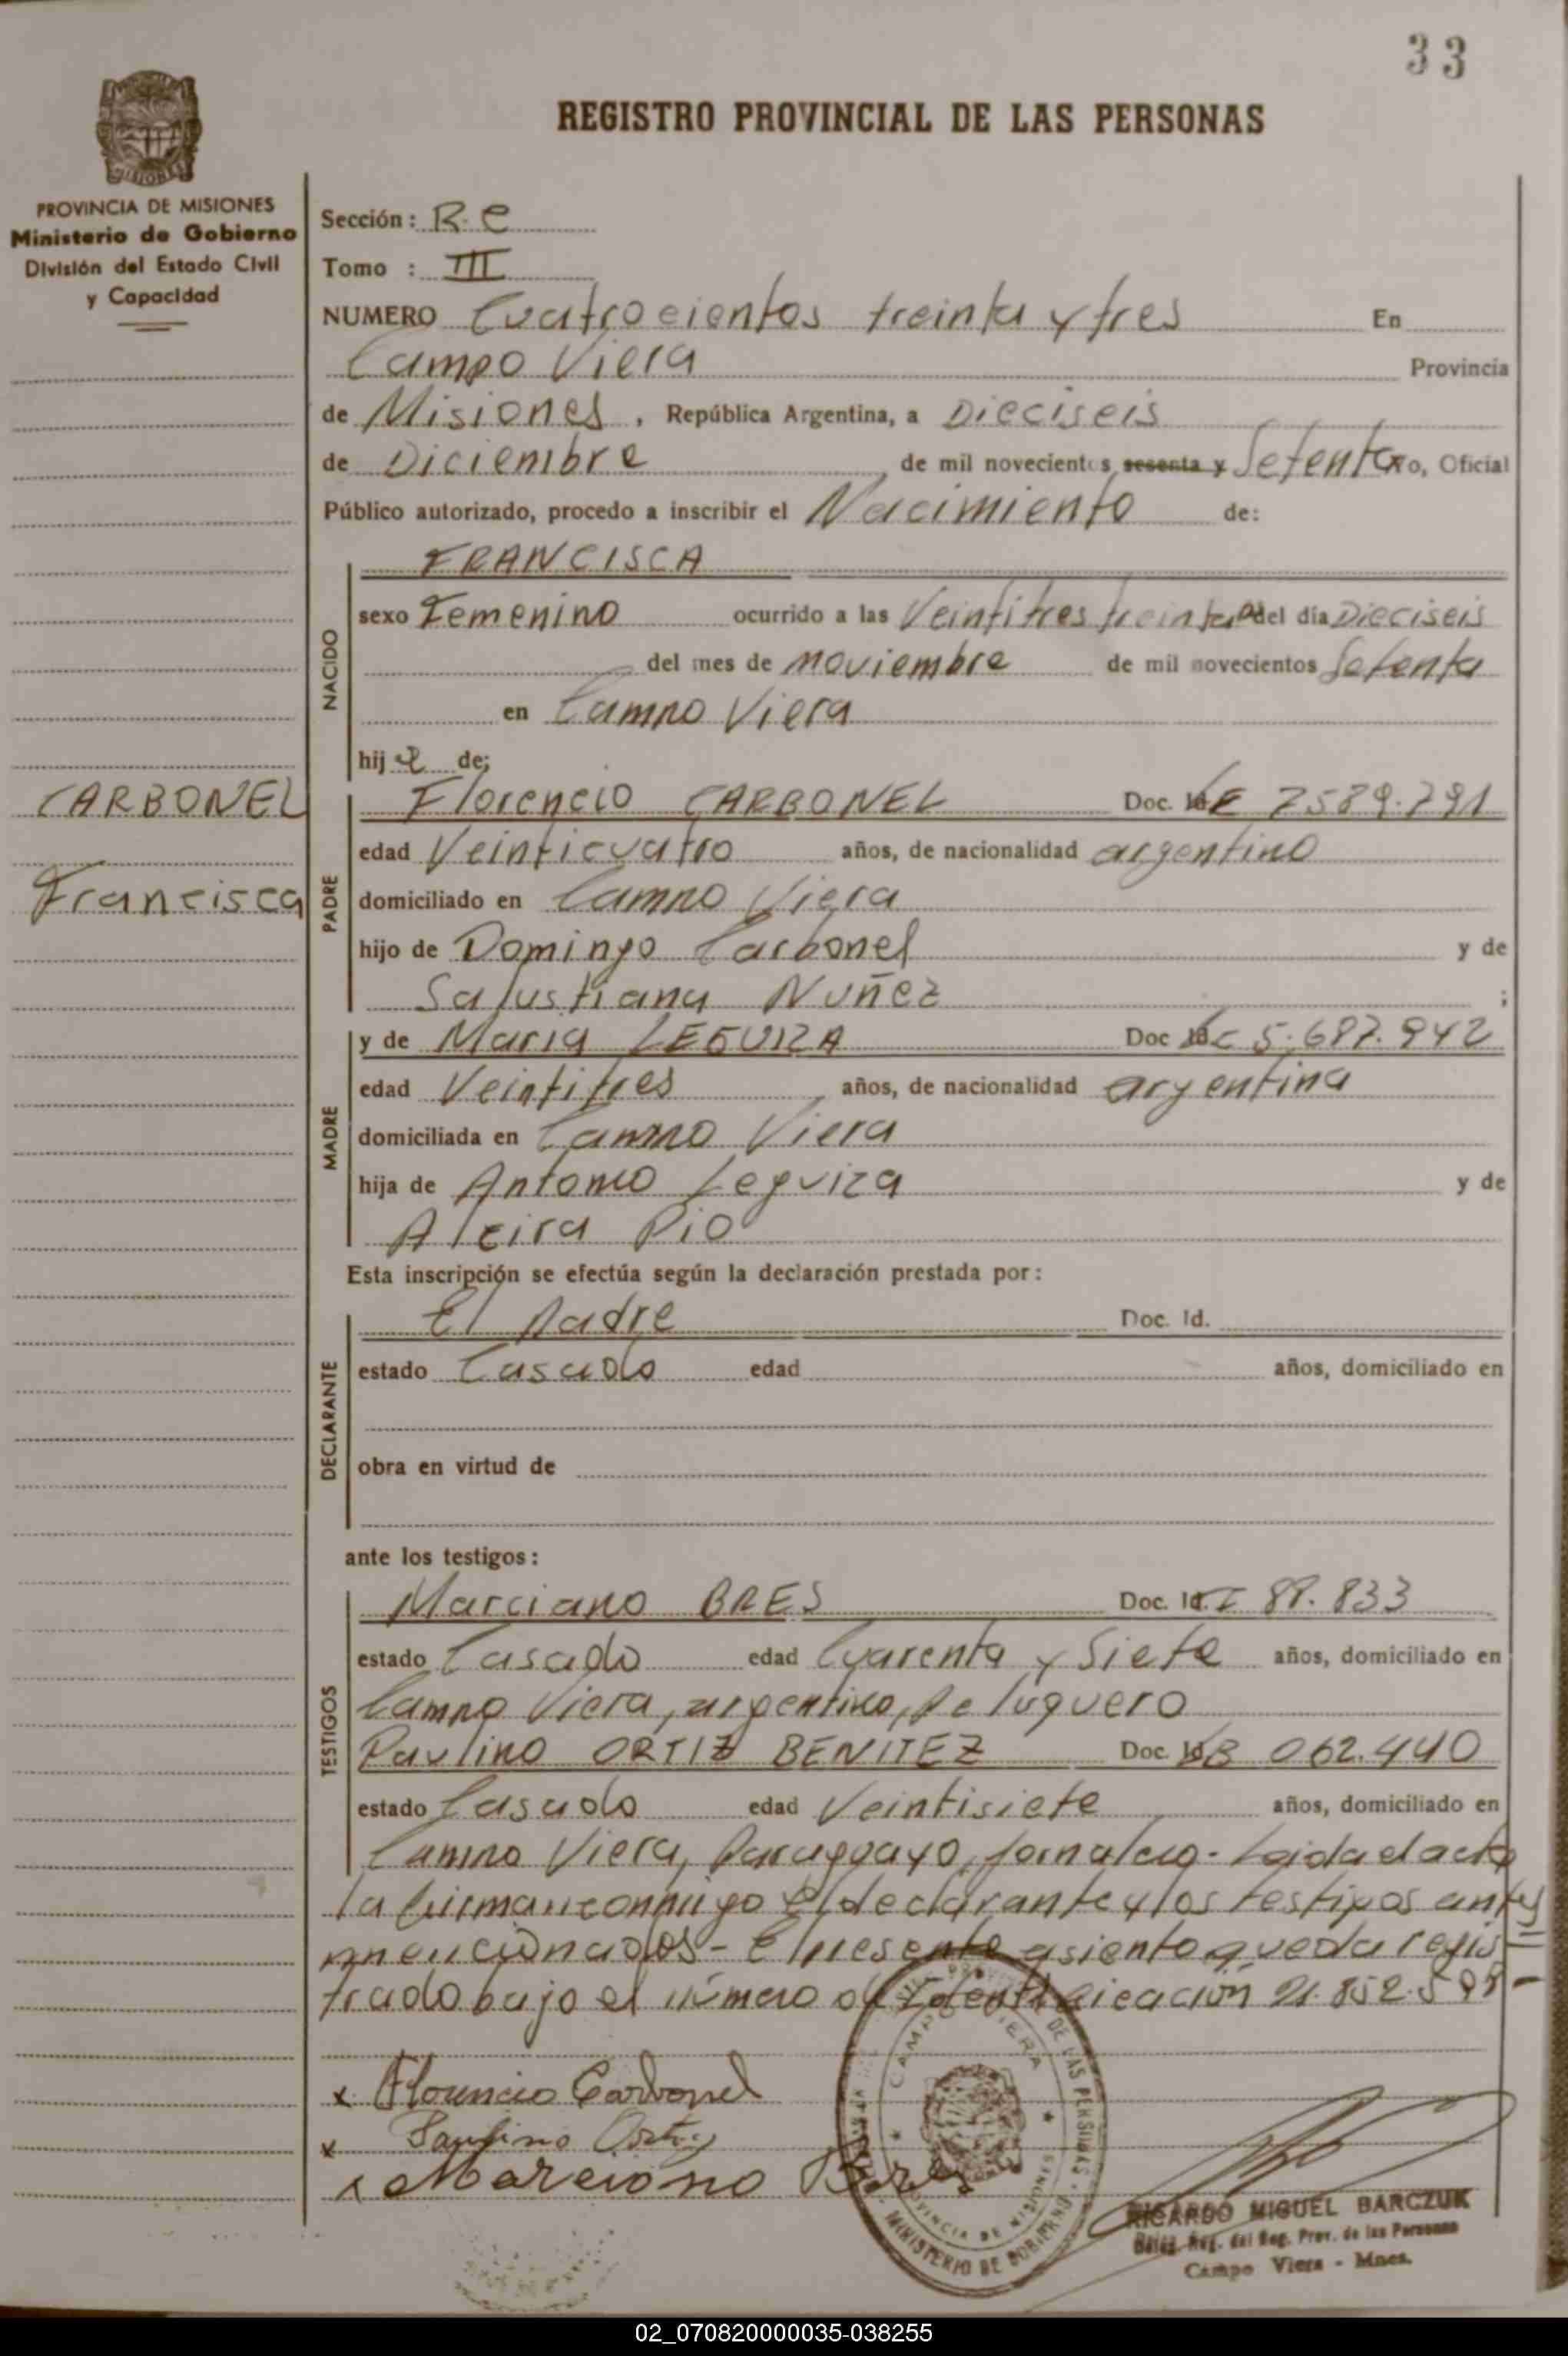 33
REGISTRO PROVINCIAL DE LAS PERSONAS
MISIONES
PROVINCIA DE MISIONES
Ministerio de Gobierno
División del Estado Civil
y Capacidad
Sección: R. C
Tomo : III
NUMERO Cuatrocientos treinta y tres En
Campo Viera Provincia
de Misiones, República Argentina, a Dieciseis
de Diciembre de mil novecientos sesenta y Setenta yo, Oficial
Público autorizado, procedo a inscribir el Nacimiento de:
NACIDO
FRANCISCA
sexo Femenino ocurrido a las Veintitres treinta del día Dieciseis
del mes de noviembre de mil novecientos Setenta
en Campo Viera
hija de;
CARBONEL
Francisca
PADRE
Florencio CARBONEL Doc. LE 7589.791
edad Veinticuatro años, de nacionalidad argentino
domiciliado en Campo Viera
hijo de Domingo Carbonel y de
Salustiana Nuñez ;
MADRE
y de Maria LEGUIZA Doc LC 5.687.942
edad Veintitres años, de nacionalidad argentina
domiciliada en Campo Viera
hija de Antonio Leguiza y de
Alcira Pio
Esta inscripción se efectúa según la declaración prestada por:
DECLARANTE
El Padre Doc. Id.
estado Casado edad años, domiciliado en
obra en virtud de
ante los testigos:
TESTIGOS
Marciano BRES Doc. Id. 88.833
estado Casado edad Cuarenta y Siete años, domiciliado en
Campo Viera, argentino, Peluquero
Paulino ORTIZ BENITEZ Doc. 062.440
estado Casado edad Veintisiete años, domiciliado en
Campo Viera, Paraguayo, jornalero - Leida el acta
la firman conmigo el declarante y los testigos antes
mencionados - El presente asiento queda regis
trado bajo el número de Identificación 21.852.598 -
x Florencio Carbonel
x Paulino Ortiz
x Marciano Bres
CAMPO VIERA
PROVINCIA DE MISIONES
MINISTERIO DE GOBIERNO
DE LAS PERSONAS
RICARDO MIGUEL BARCZUK
Deleg. Reg. del Reg. Prov. de las Personas
Campo Viera - Mnes.
02_070820000035-038255